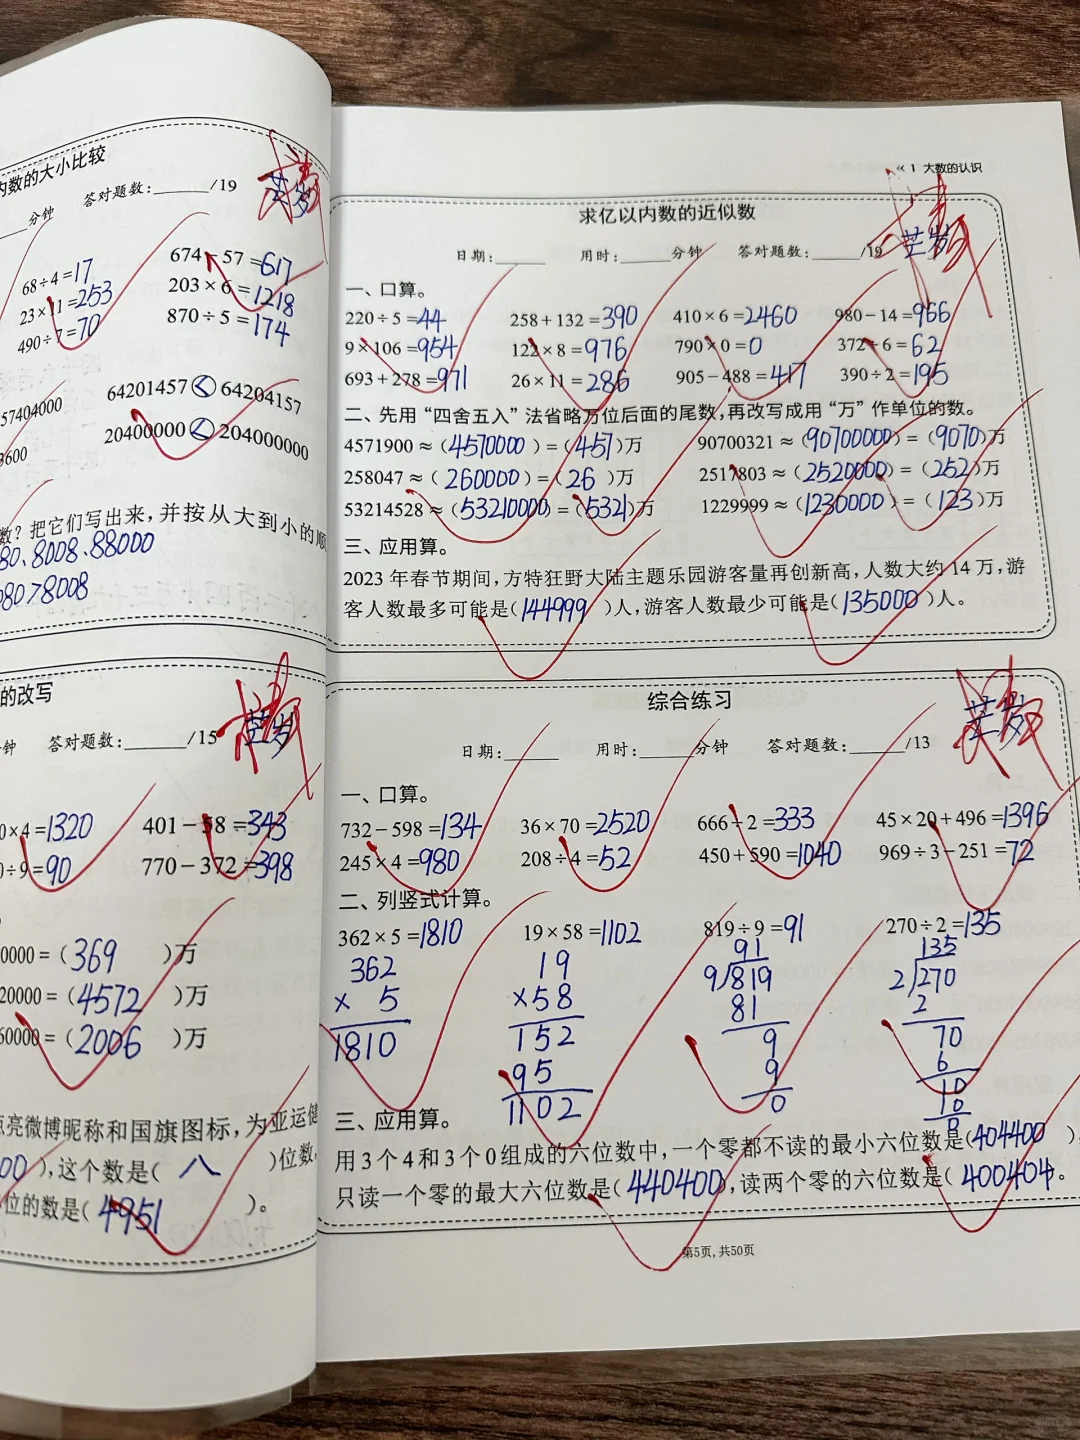 内数的大小比较
分钟 答对题数:______/19
68÷4=17 674-57=617
23×11=253 203×6=1218
490÷7=70 870÷5=174
57404000 64201457<64204157
3600 20400000<204000000
数?把它们写出来,并按从大到小的顺
80、8008、88000
080>8008
的改写
钟 答对题数:______/15
0×4=1320 401-58=343
0÷9=90 770-372=398
0000=(369)万
20000=(4572)万
60000=(2006)万
点亮微博昵称和国旗图标,为亚运健
00),这个数是(八)位数,
位的数是(4951)。
1 大数的认识
求亿以内数的近似数
日期:______ 用时:______分钟 答对题数:______/19
一、口算。
220÷5=44 258+132=390 410×6=2460 980-14=966
9×106=954 122×8=976 790×0=0 372÷6=62
693+278=971 26×11=286 905-488=417 390÷2=195
二、先用“四舍五入”法省略万位后面的尾数,再改写成用“万”作单位的数。
4571900≈(4570000)=(457)万 90700321≈(90700000)=(9070)万
258047≈(260000)=(26)万 2517803≈(2520000)=(252)万
53214528≈(53210000)=(5321)万 1229999≈(1230000)=(123)万
三、应用算。
2023年春节期间,方特狂野大陆主题乐园游客量再创新高,人数大约14万,游
客人数最多可能是(144999)人,游客人数最少可能是(135000)人。
综合练习
日期:______ 用时:______分钟 答对题数:______/13
一、口算。
732-598=134 36×70=2520 666÷2=333 45×20+496=1396
245×4=980 208÷4=52 450+590=1040 969÷3-251=72
二、列竖式计算。
362×5=1810 19×58=1102 819÷9=91 270÷2=135
362 19 91 135
× 5 ×58 9)819 2)270
1810 152 81 2
95 9 70
1102 9 6
0 10
10
0
三、应用算。
用3个4和3个0组成的六位数中,一个零都不读的最小六位数是(404400),
只读一个零的最大六位数是(440400),读两个零的六位数是(400404)。
第5页,共50页